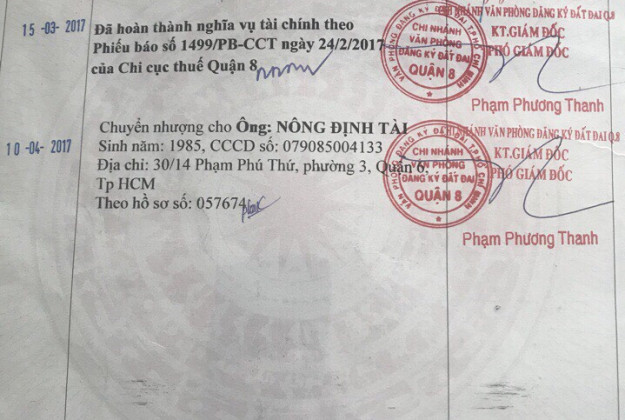 15 -03- 2017
Đã hoàn thành nghĩa vụ tài chính theo
Phiếu báo số 1499/PB-CCT ngày 24/2/2017
của Chi cục thuế Quận 8
NHÁNH VĂN PHÒNG ĐĂNG KÝ ĐẤT ĐAI Q.8
KT.GIÁM ĐỐC
PHÓ GIÁM ĐỐC
CHI NHÁNH
VĂN PHÒNG
ĐĂNG KÝ ĐẤT ĐAI
QUẬN 8
Phạm Phương Thanh
10 -04- 2017
Chuyển nhượng cho Ông: NÔNG ĐỊNH TÀI
Sinh năm: 1985, CCCD số: 079085004133
Địa chỉ: 30/14 Phạm Phú Thứ, phường 3, Quận 6,
Tp HCM
Theo hồ sơ số: 057674
NHÁNH VĂN PHÒNG ĐĂNG KÝ ĐẤT ĐAI Q.8
KT.GIÁM ĐỐC
PHÓ GIÁM ĐỐC
CHI NHÁNH
VĂN PHÒNG
ĐĂNG KÝ ĐẤT ĐAI
QUẬN 8
Phạm Phương Thanh